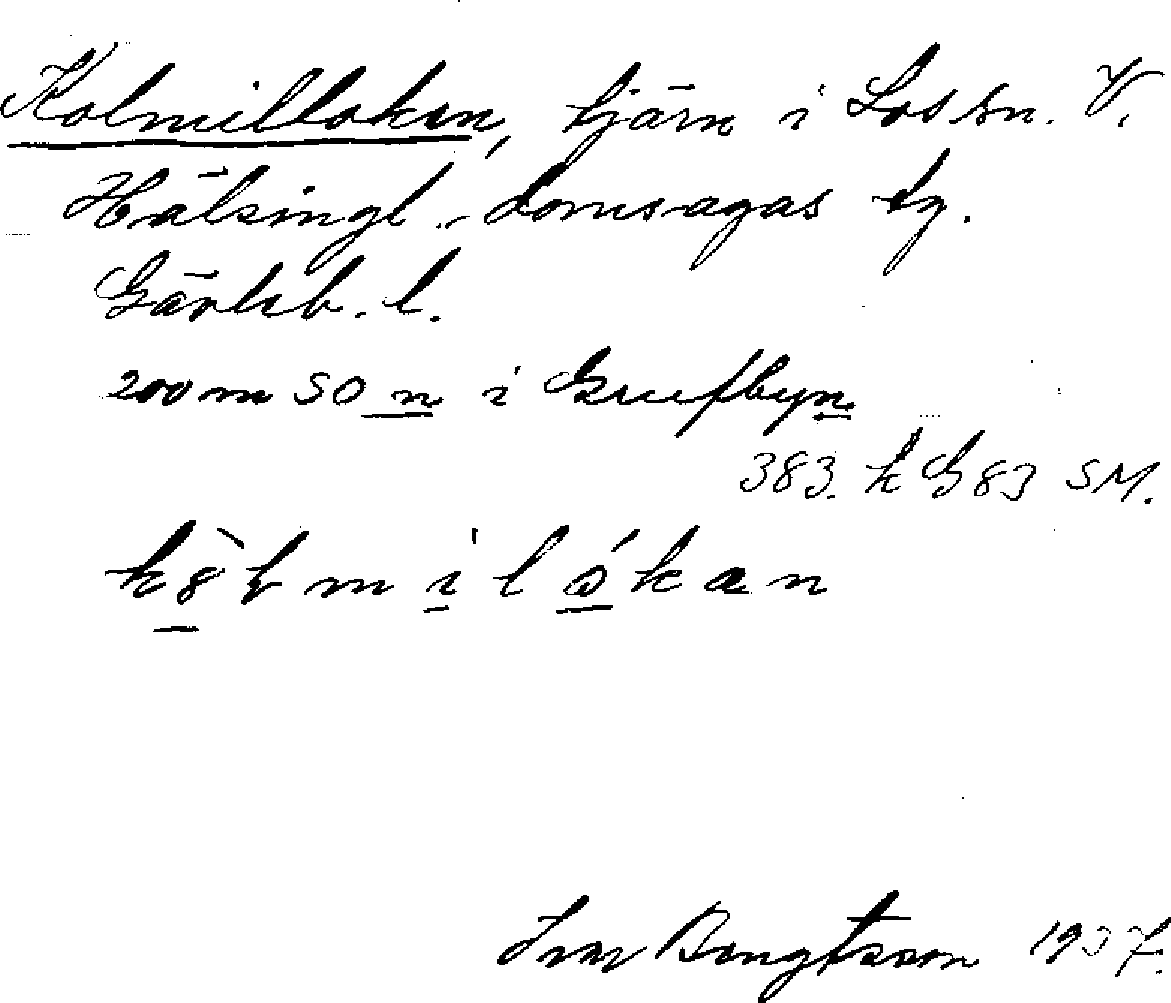 Kolmilloken, tjärn i Los sn. V.
Hälsingl. domsagas tg.
Gävleb. l.
200 m SO n i Grufbyn
383. k G 83 SM.
k8̀ƚmilókan
Ivar Bengtsson 1937.